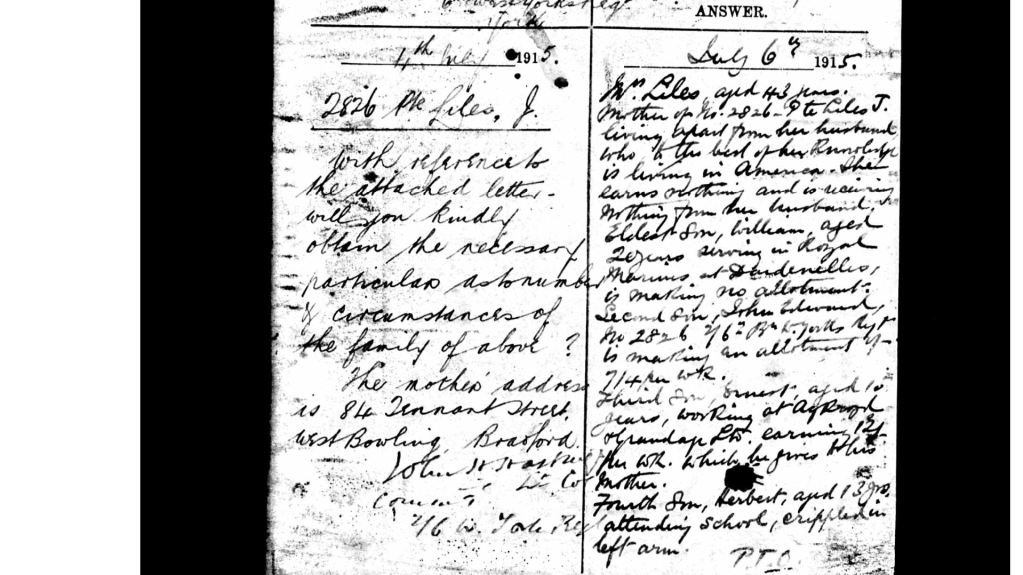 York
4th July 1915.
2826 Pte Liles, J.
With reference to
the attached letter -
will you kindly
obtain the necessary
particulars as to number
& circumstances of
the family of above ?
The mother's address
is 84 Tennant Street,
West Bowling, Bradford.
John H
Lt Col
Commg
2/6 W. York Reg
ANSWER.
July 6th 1915.
Mrs Liles, aged 43 years.
Mother of No. 2826 - Pte Liles J.
living apart from her husband
who, to the best of her knowledge
is living in America. She
earns nothing and is receiving
nothing from her husband.
Eldest Son, William, aged
20 years serving in Royal
Marines at Dardenelles,
is making no allotment.
Second Son, John Edward,
No 2826 2/6th Bn W. Yorks Regt
is making an allotment of
7/4 per wk.
Third Son, Ernest, aged
years, working at
Ltd. earning
per wk. which he gives to his
mother.
Fourth Son, Herbert, aged 13 yrs,
attending school, crippled in
left arm.
P.T.O.